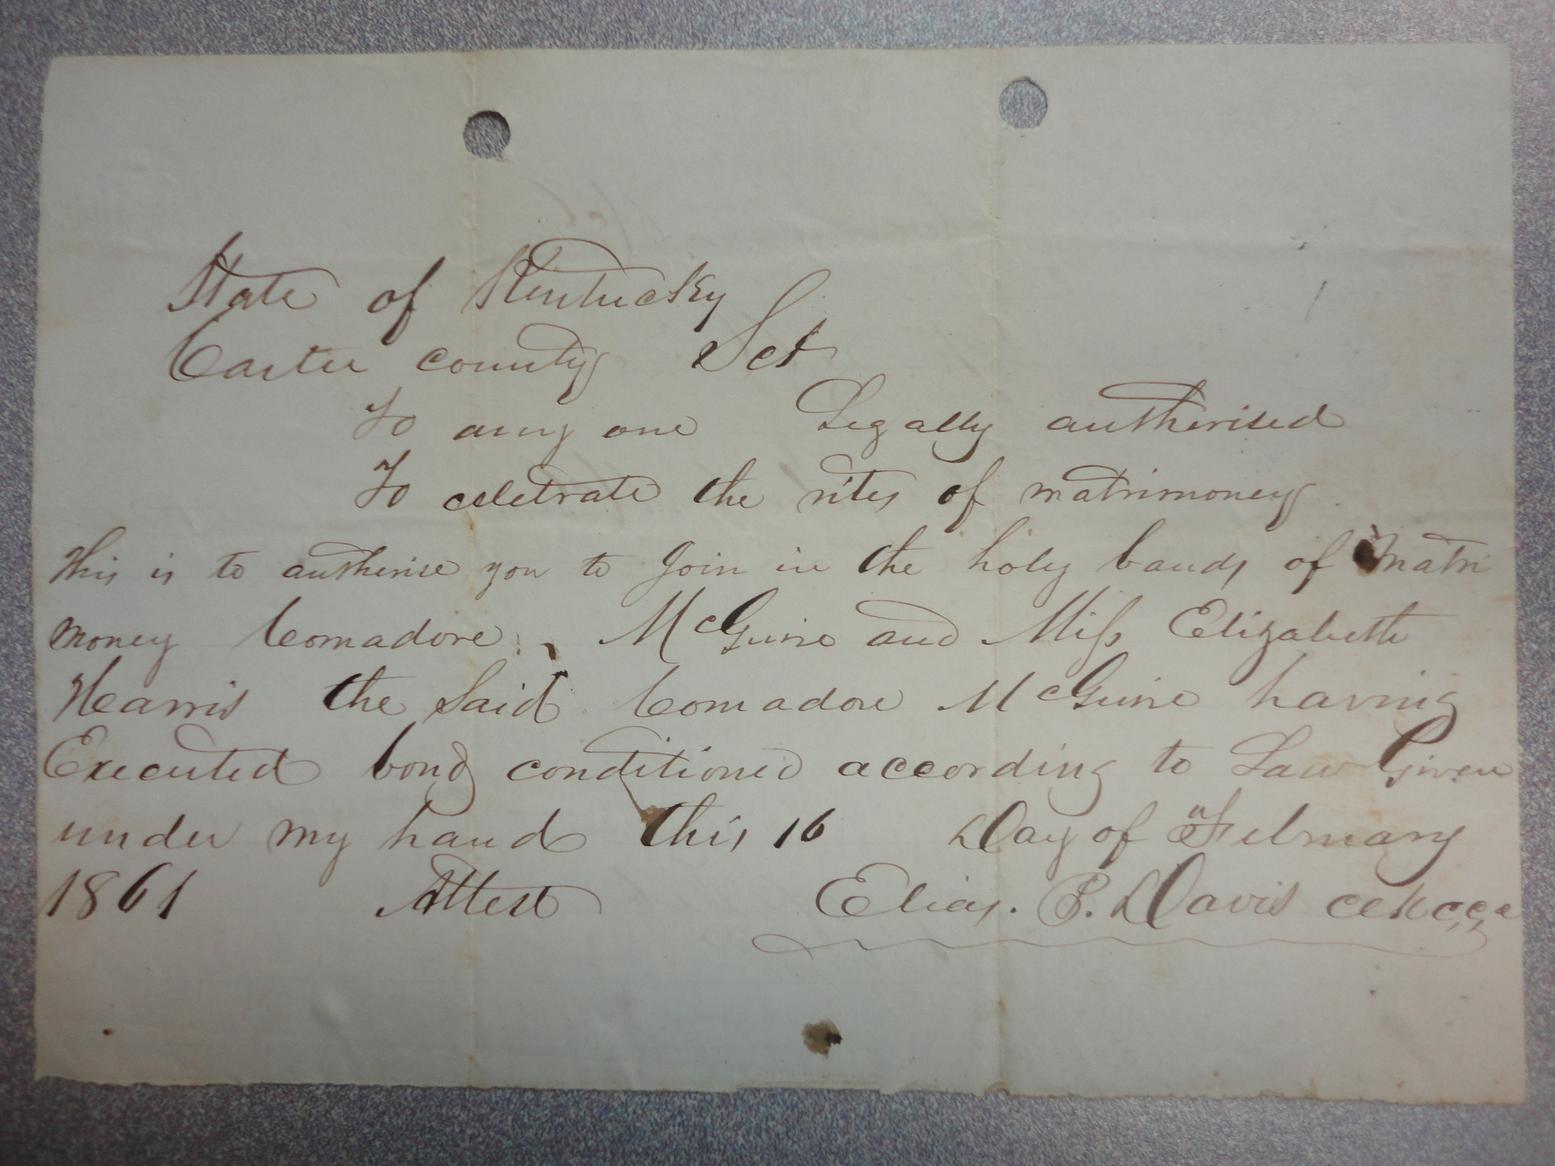 State of Kentucky
Carter county Sct
To any one Legally autherised
To celetrate the rites of matrimoney
This is to autherise you to Join in the holy bands of Matri
money Comadore McGuire and Miss Elizabeth
Harris the Said Comadore McGuire having
Executed bond conditioned according to Law Given
under my hand this 16 Day of February
1861 Attest Elias. P. Davis